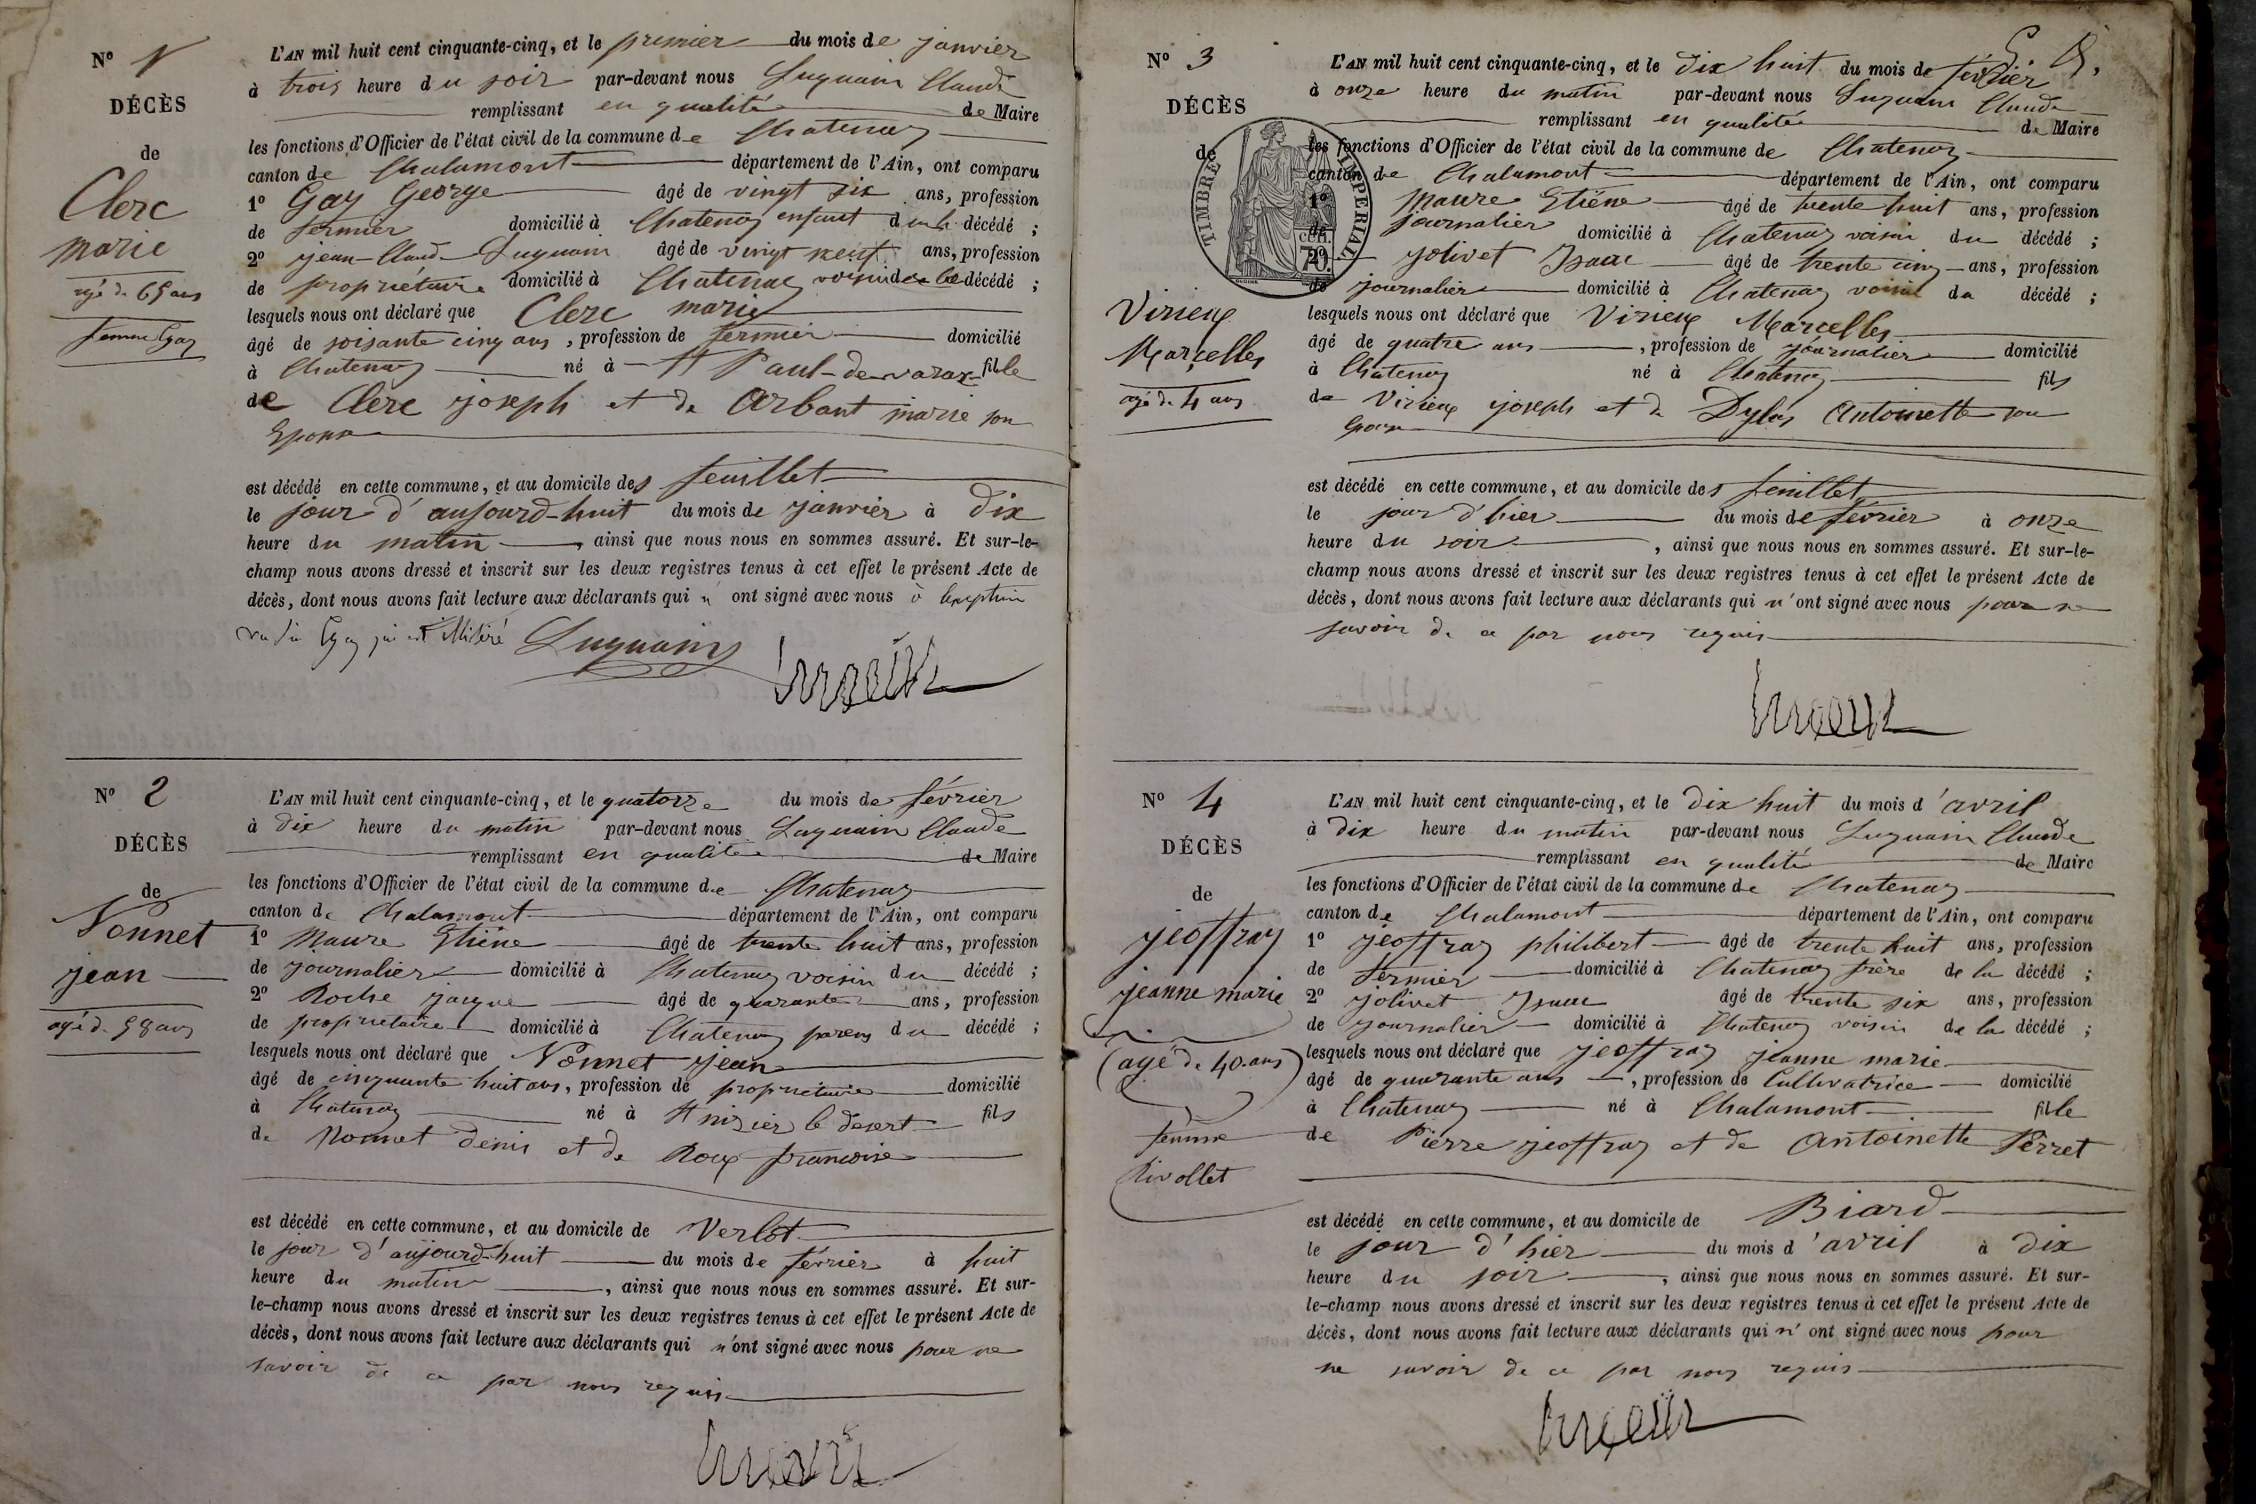 N° 1
DÉCÈS
de
Clerc
marie
agé de 65 ans
femme Gay
L'AN mil huit cent cinquante-cinq, et le premier du mois de janvier
à trois heure du soir par-devant nous Luquain Claude
remplissant en qualité de Maire
les fonctions d'Officier de l'état civil de la commune de Chatenay
canton de Chalamont département de l'Ain, ont comparu
1° Gay George âgé de vingt six ans, profession
de fermier domicilié à Chatenay enfant de la décédé ;
2° jean-Claude Luquain âgé de vingt neuf ans, profession
de propriétaire domicilié à Chatenay voisin de la décédé ;
lesquels nous ont déclaré que Clerc marie
âgé de soisante cinq ans, profession de fermier domicilié
à Chatenay né à St Paul-de-varax fille
de Clerc joseph et de Arbant marie son
Epouse
est décédé en cette commune, et au domicile des feuillet
le jour d'aujourd-huit du mois de janvier à dix
heure du matin, ainsi que nous nous en sommes assuré. Et sur-le-
champ nous avons dressé et inscrit sur les deux registres tenus à cet effet le présent Acte de
décès, dont nous avons fait lecture aux déclarants qui ont signé avec nous à lexeption
Gay qui est illitéré Luquain
N° 2
DÉCÈS
de
Vonnet
jean
agé de 58 ans
L'AN mil huit cent cinquante-cinq, et le quatorze du mois de février
à dix heure du matin par-devant nous Luquain Claude
remplissant en qualité de Maire
les fonctions d'Officier de l'état civil de la commune de Chatenay
canton de Chalamont département de l'Ain, ont comparu
1° Maure Etiéne âgé de trente huit ans, profession
de journalier domicilié à Chatenay voisin du décédé ;
2° Roche jacque âgé de quarante ans, profession
de proprietaire domicilié à Chatenay parens du décédé ;
lesquels nous ont déclaré que Vonnet jean
âgé de cinquante huit ans, profession de propriétaire domicilié
à Chatenay né à St nizier le desert fils
de Vonnet denis et de Roux francoise
est décédé en cette commune, et au domicile de Verlot
le jour d'aujourd-huit du mois de février à huit
heure du matin, ainsi que nous nous en sommes assuré. Et sur-
le-champ nous avons dressé et inscrit sur les deux registres tenus à cet effet le présent Acte de
décès, dont nous avons fait lecture aux déclarants qui n'ont signé avec nous pour ne
savoir de ce par nous requis
N° 3
DÉCÈS
de
TIMBRE IMPERIAL
70.
Virieux
Marcelles
agé de 4 ans
L'AN mil huit cent cinquante-cinq, et le dix huit du mois de février
à onze heure du matin par-devant nous Luquain Claude
remplissant en qualité de Maire
les fonctions d'Officier de l'état civil de la commune de Chatenay
canton de Chalamont département de l'Ain, ont comparu
1° Maure Etiéne âgé de trente huit ans, profession
de journalier domicilié à Chatenay voisin du décédé ;
2° jolivet Isaac âgé de trente cinq ans, profession
de journalier domicilié à Chatenay voisin du décédé ;
lesquels nous ont déclaré que Virieux Marcelles
âgé de quatre ans, profession de journalier domicilié
à Chatenay né à Chatenay fils
de Virieux joseph et de Dylas Antoinette son
Epouse
est décédé en cette commune, et au domicile des feuillet
le jour d'hier du mois de février à onze
heure du soir, ainsi que nous nous en sommes assuré. Et sur-le-
champ nous avons dressé et inscrit sur les deux registres tenus à cet effet le présent Acte de
décès, dont nous avons fait lecture aux déclarants qui n'ont signé avec nous pour ne
savoir de ce par nous requis
N° 4
DÉCÈS
de
jeoffray
jeanne marie
(agé de 40 ans)
femme
Rivollet
L'AN mil huit cent cinquante-cinq, et le dix huit du mois d'avril
à dix heure du matin par-devant nous Luquain Claude
remplissant en qualité de Maire
les fonctions d'Officier de l'état civil de la commune de Chatenay
canton de Chalamont département de l'Ain, ont comparu
1° jeoffray philibert âgé de trente huit ans, profession
de fermier domicilié à Chatenay frère de la décédé ;
2° jolivet Isaac âgé de trente six ans, profession
de journalier domicilié à Chatenay voisin de la décédé ;
lesquels nous ont déclaré que jeoffray jeanne marie
âgé de quarante ans, profession de Cultivatrice domicilié
à Chatenay né à Chalamont fille
de Pierre jeoffray et de Antoinette Perret
est décédé en cette commune, et au domicile de Biard
le jour d'hier du mois d'avril à dix
heure du soir, ainsi que nous nous en sommes assuré. Et sur-
le-champ nous avons dressé et inscrit sur les deux registres tenus à cet effet le présent Acte de
décès, dont nous avons fait lecture aux déclarants qui n'ont signé avec nous pour
ne savoir de ce par nous requis